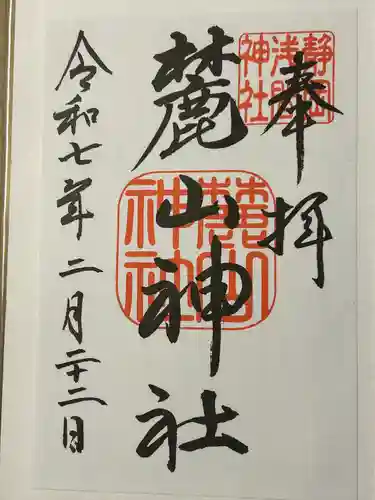 奉拝
静岡浅間神社
麓山神社
麓山神社
令和七年二月二十二日